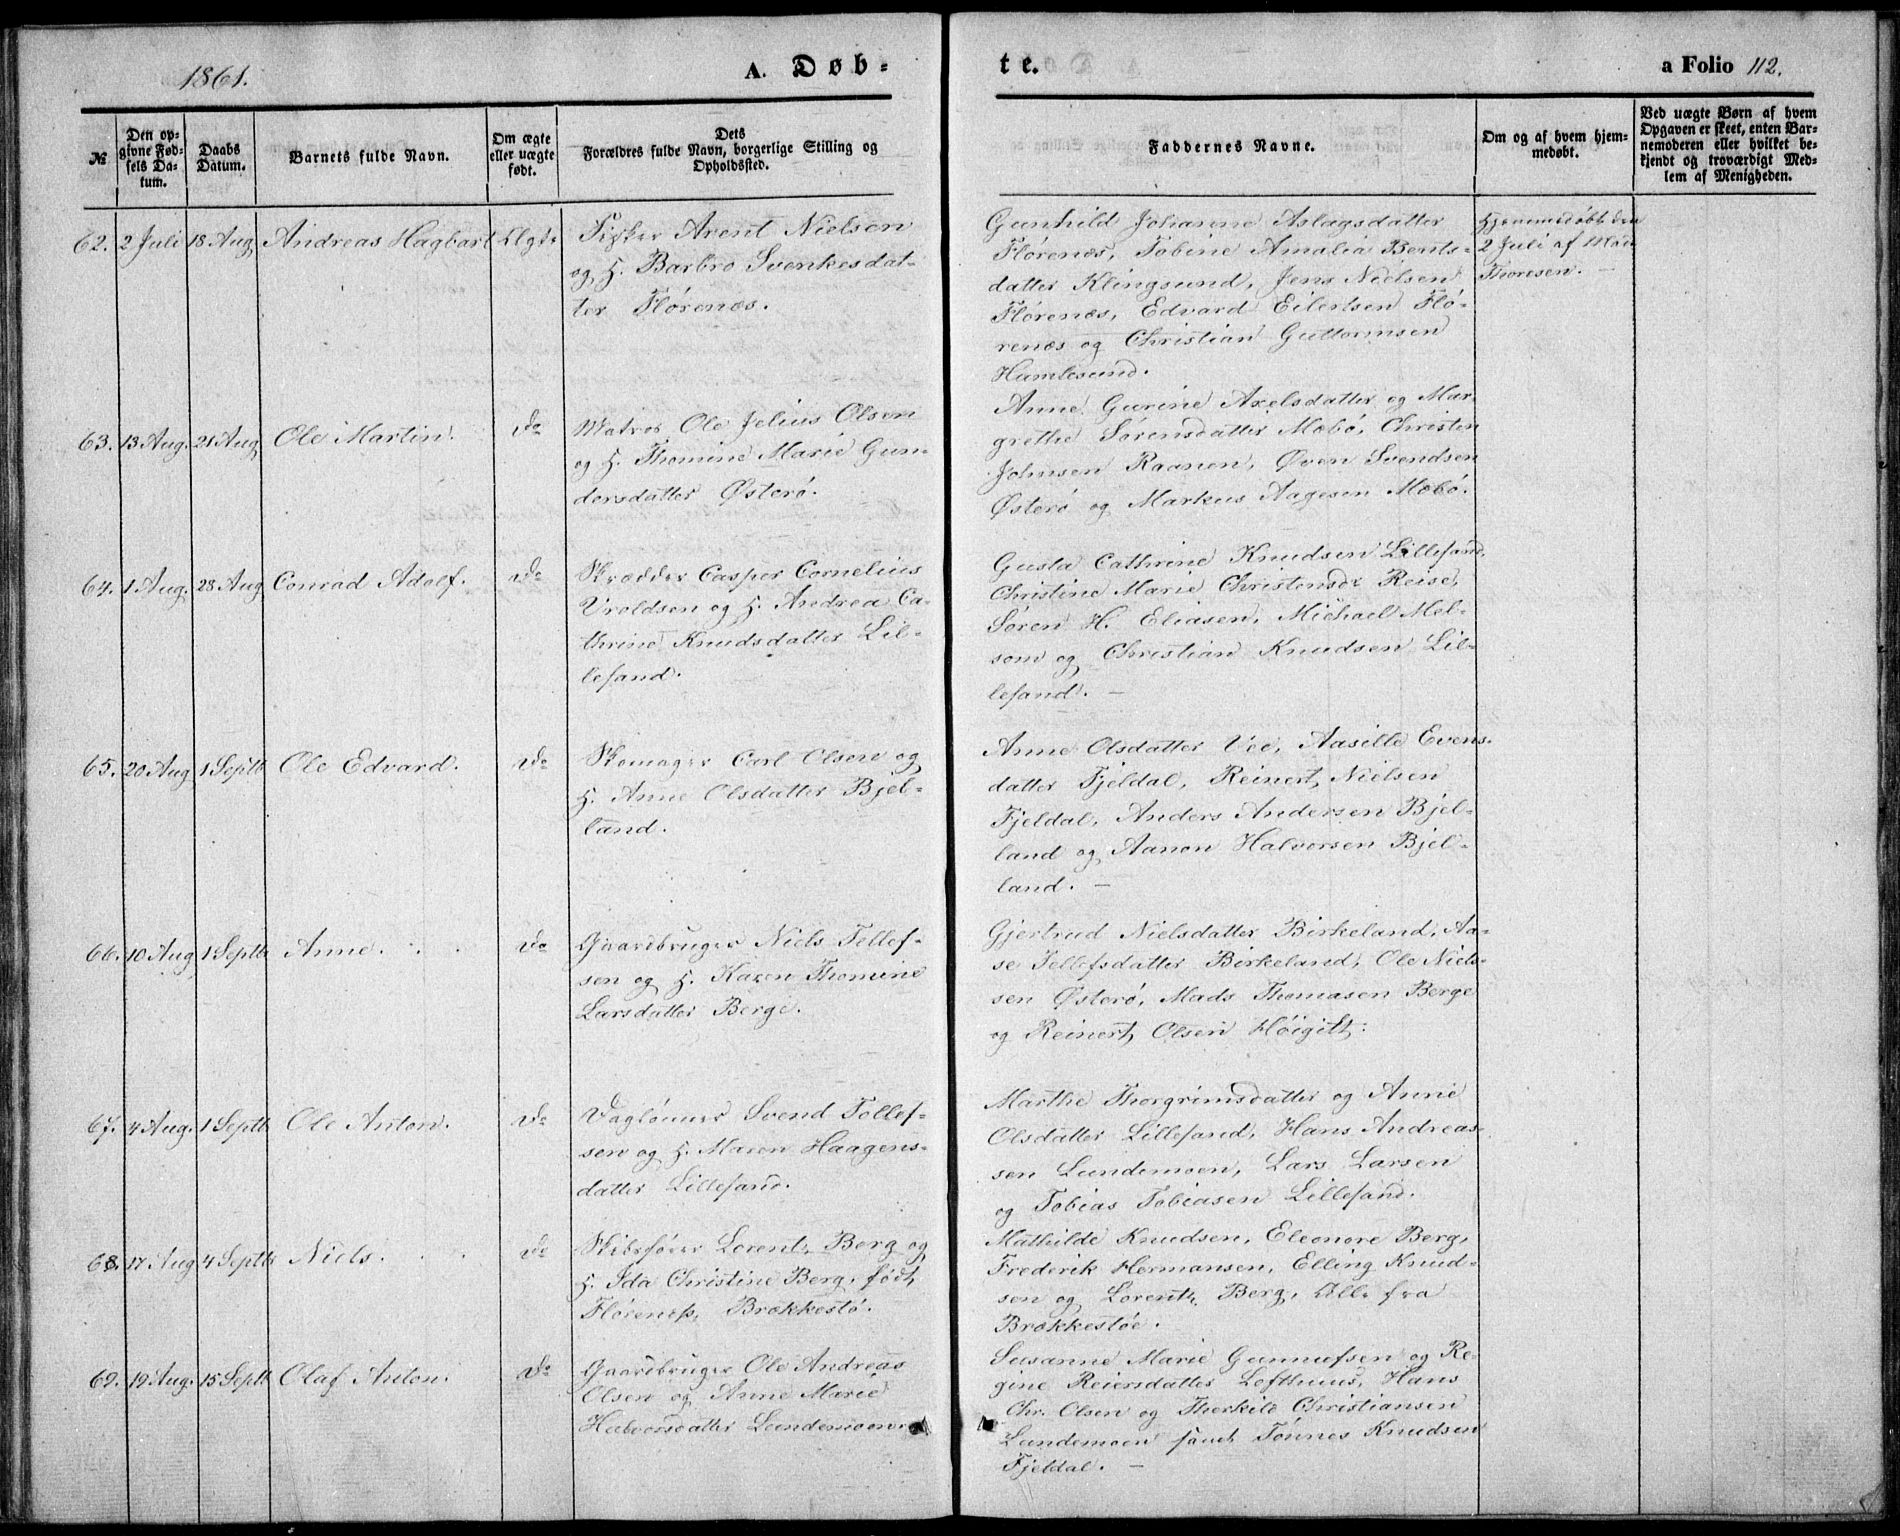 1861.
A. Døb-
te.
a Folio 112.
№
Den op-
givne Fød-
sels Da-
tum.
Daabs
Datum.
Barnets fulde Navn.
Om ægte
eller uægte
født.
Dets
Forældres fulde Navn, borgerlige Stilling og
Opholdssted.
Faddernes Navne.
Om og af hvem hjem-
medøbt.
Ved uægte Børn af hvem
Opgaven er skeet, enten Bar-
nemoderen eller hvilket be-
kjendt og troværdigt Med-
lem af Menigheden.
62. 2 Juli 18 Aug Andreas Hagbart Ægte
Fisker Arent Nielsen
og H. Barbro Svenkesdat-
ter Flørenæs.
Gunhild Johanne Aslagsdatter
Flørenæs, Tobine Amalia Bents-
datter Klingsund, Jens Nielsen
Flørenæs, Edvard Eilertsen Flø-
renæs og Christian Guttormsen
Humlesund.
Hjemmedøbt den
2 Juli af
Thoresen. —
63. 13 Aug. 21 Aug Ole Martin. Do
Matros Ole Jelius Olsen
og H. Thomine Marie Gun-
dersdatter Østerø.
Anne Gurine Axelsdatter og Mar-
grethe Sørensdatter Mebø, Christen
Johnsen Raanen, Øven Svendsen
Østerø og Markus Aagesen Mebø.
64. 1 Aug. 28 Aug Conrad Adolf. Do
Skrædder Casper Cornelius
Vroldsen og H. Andrea Ca-
thrine Knudsdatter Lil-
lesand.
Gusta Cathrine Knudsen Lillesand,
Christine Marie Christensdr Reise,
Søren H. Eliasen, Michael Mel-
som og Christian Knudsen Lil-
lesand. —
65. 20 Aug 1 Septb Ole Edvard. Do
Skomager Carl Olsen og
H. Anne Olsdatter Bjel-
land.
Anne Olsdatter Vee, Aasille Evens-
datter Fjeldal, Reinert Nielsen
Fjeldal, Anders Andersen Bjel-
land og Aanon Halvorsen Bjel-
land. —
66. 10 Aug 1 Septb Anne. Do
Gaardbruger Niels Tellef-
sen og H. Karen Thomine
Larsdatter Berge.
Gjertrud Nielsdatter Birkeland, Aa-
se Tellefsdatter Birkeland, Ole Niel-
sen Østerø, Mads Thomasen Berge
og Reinert Olsen Høigilt.
67. 4 Aug. 1 Septb Ole Anton. Do
Daglønner Svend Tollef-
sen og H. Maren Haagens-
datter Lillesand.
Marthe Thorgrimsdatter og Anne
Olsdatter Lillesand, Hans Andreas-
sen Lundemoen, Lars Larsen
og Tobias Tobiasen Lillesand.
68. 17 Aug 4 Septb Niels. Do
Skibsfører Lorents Berg og
H. Ida Christine Berg, født
Flørenæs, Brekkestø.
Mathilde Knudsen, Eleonore Berg,
Frederik Hermansen, Elling Knud-
sen og Lorents Berg, Alle fra
Brekkestøe.
69. 19 Aug. 15 Septb Olaf Anton. Do
Gaardbruger Ole Andreas
Olsen og Anne Marie
Halvorsdatter Lundemoen.
Susanne Marie Gunnufsen og Re-
gine Reiersdatter Lofthuus, Hans
Chr. Olsen og Therkild Christiansen
Lundemoen samt Tønnes Knudsen
Fjeldal. —